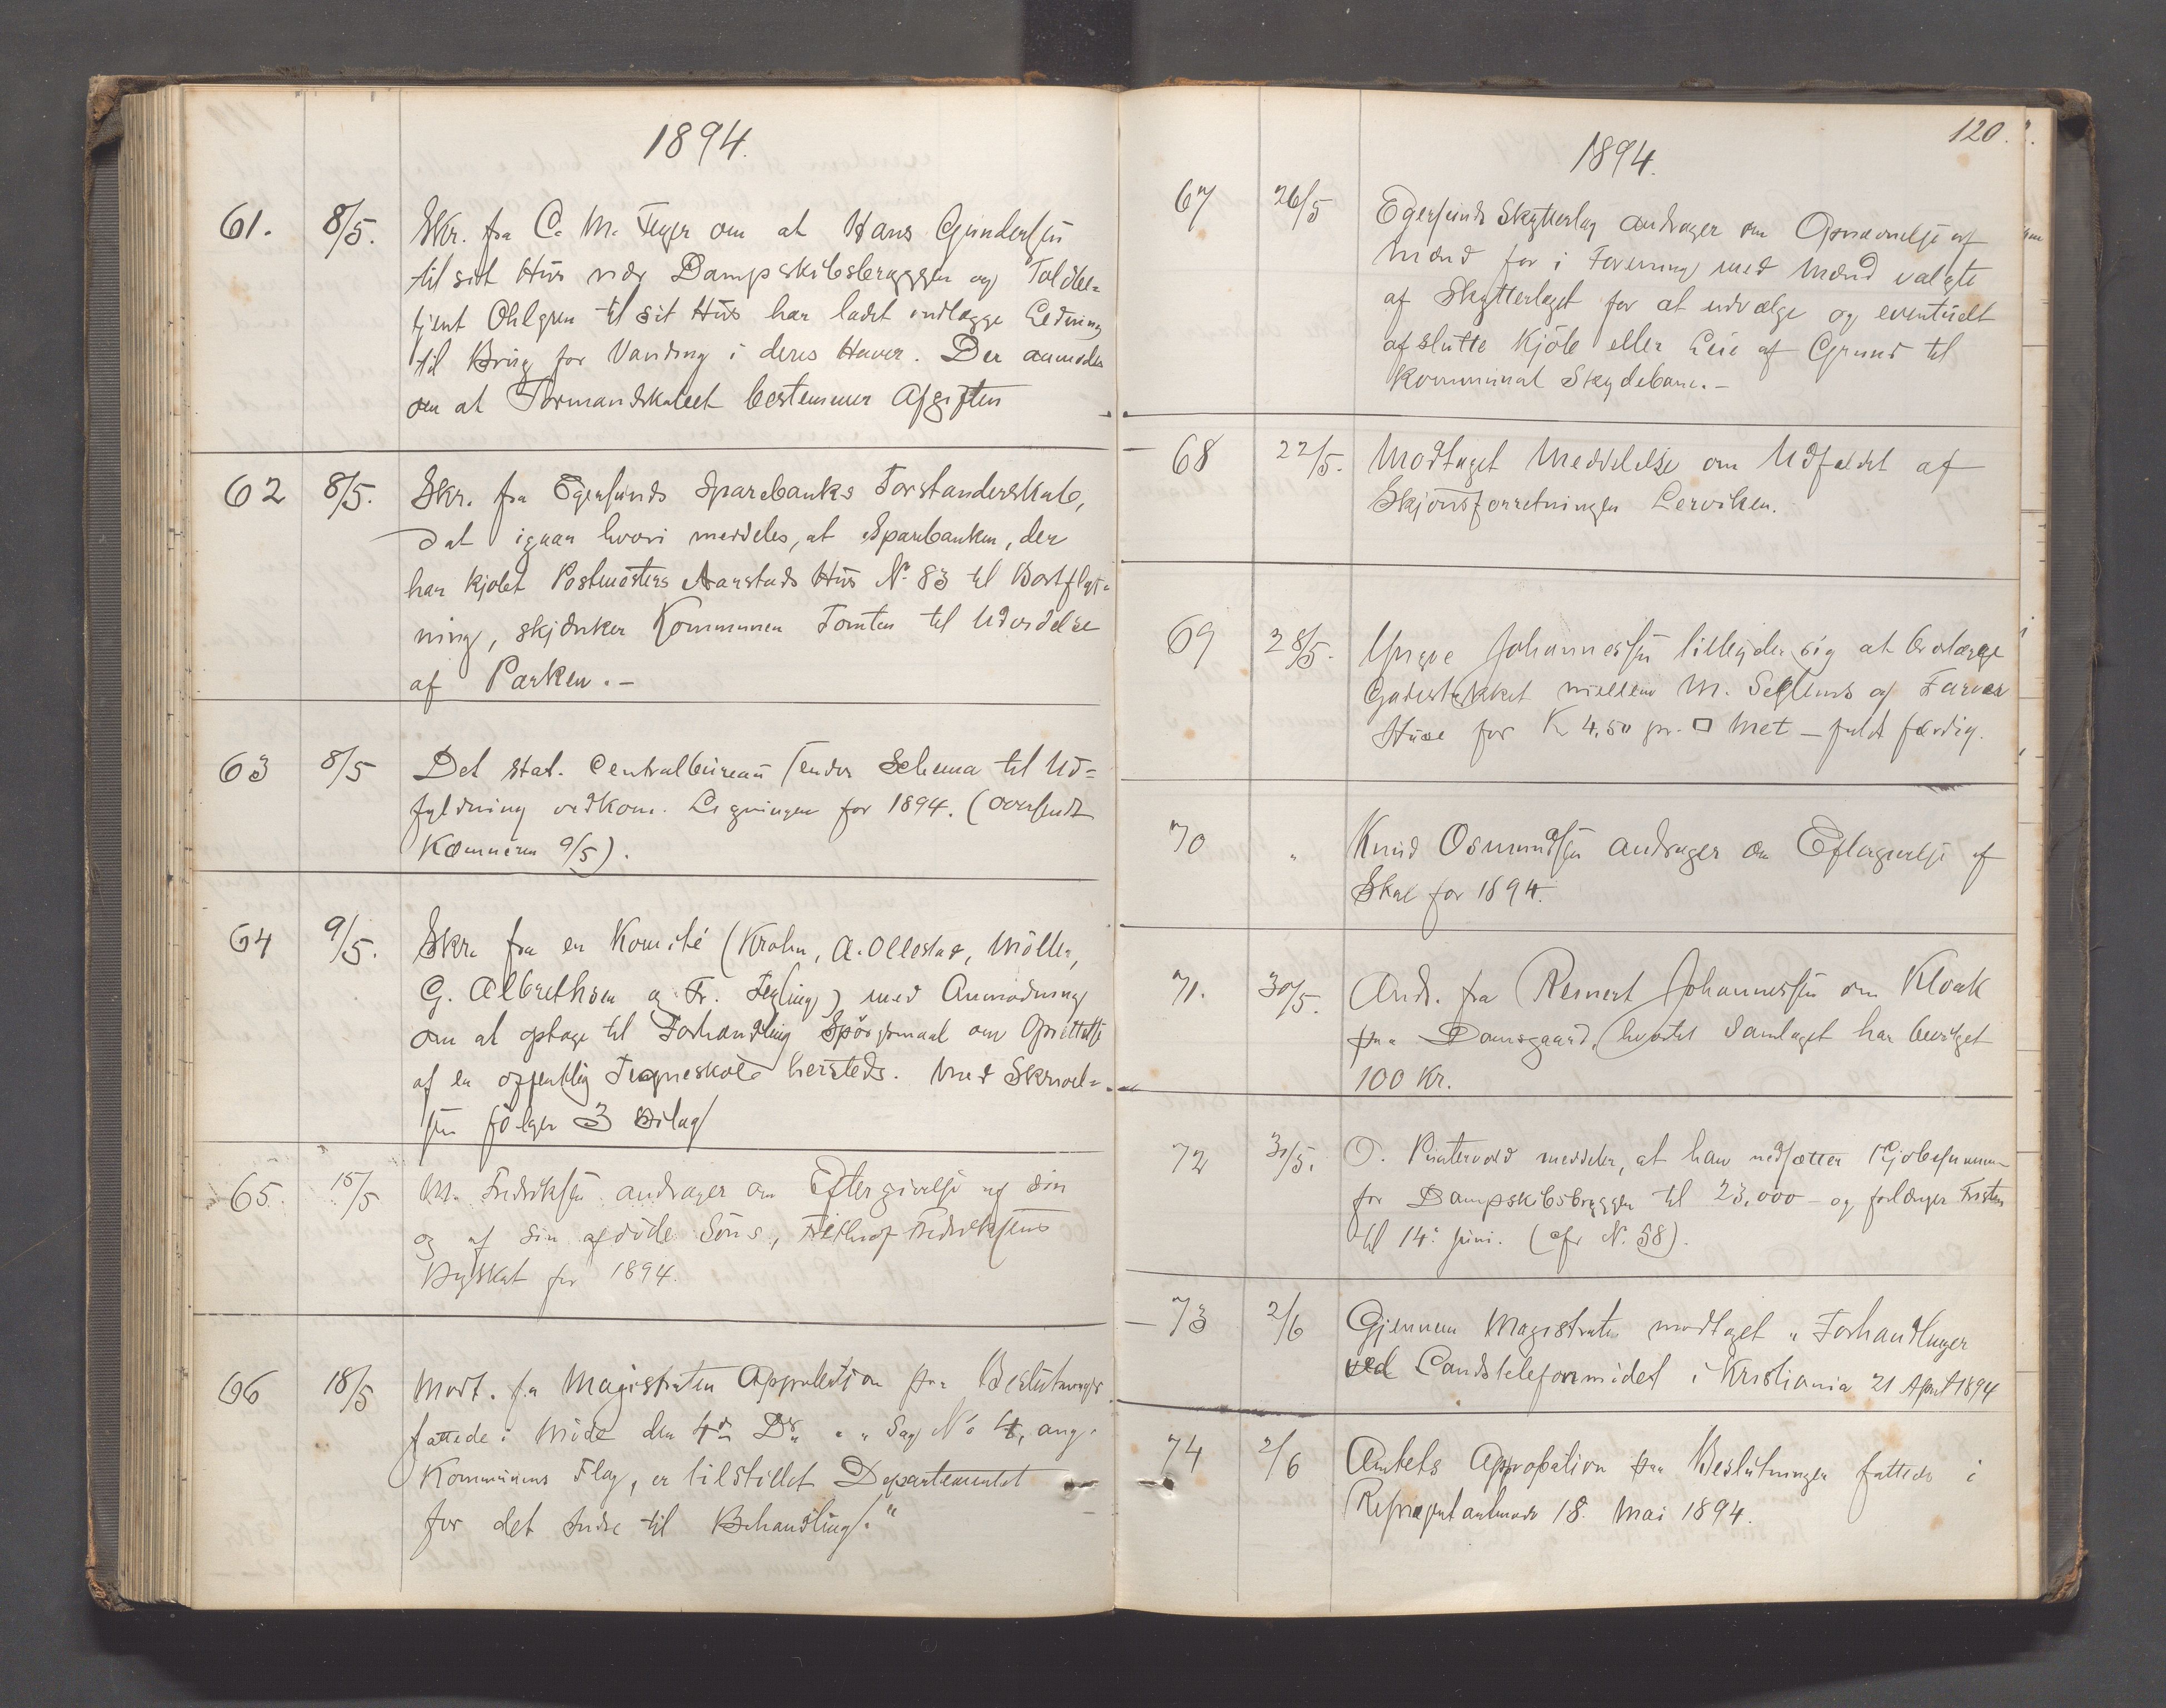 1894.
61. 8/5. Skr. fra C. M. Feyer om at Hans Gundersen
til sit Hus nær Dampskibsbryggen og Toldbe-
tjent Ohlgren til sit Hus har ladet indlægge Ledning
til Brug for Vanding i deres Haver. Der anmodes
om at Formandskabet bestemmer Afgiften
62 8/5. Skr. fra Egersunds Sparebanks Forstanderskab,
dat igaar hvori meddeles, at Sparebanken, der
har kjøbt Postmesters Aarstads Hus No. 83 til Bortflyt-
ning, skjænker Kommunen Tomten til Udvidelse
af Parken. –
63 8/5 Det stat. Centralbureau sender Schema til Ud-
fyldning vedkom. Ligningen for 1894. (oversendt
Kæmneren 9/5).
64 9/5. Skr. fra en Komité (Krohn, A. Ollestad, Møller,
G. Albrethsen og Fr. ) med Anmodning
om at optage til Forhandling Spörgsmaal om Oprettelse
af en offentlig Tegneskole hersteds. Med Skrivel-
sen fölger 3 Bilag
65. 15/5 M. Fredriksen andrager om Eftergivelse af sin
og af sin afdöde Söns, Fredriksens
Byskat for 1894.
66 18/5 Modt. fra Magistraten Approbation paa Beslutninger
fattede i Möde den 4de Ds. " " Sag No 4, ang.
Kommunens Flag, er tilstillet Departementet
for det Indre til Behandling."
120.
1894.
67 26/5 Egersunds Skytterlag andrager om Opnævnelse af
Mænd for i Forening med Mænd valgte
af Skytterlaget for at udvælge og eventuelt
afslutte Kjöb eller Leie af Grund til
Kommunal Skydebane. –
68 22/5. Modtaget Meddelelse om Udfaldet af
Skjönsforretningen Lerviken.
69 28/5. Yngve Johannessen tilbyder sig at brolægge
Gadestykket mellem M. Seglems og Farver
Huse for K 4,50 pr. □ Met – fuldt færdig.
70 " Knud Osmundsen andrager om Eftergivelse af
Skat for 1894.
71. 30/5. Andr. fra Reinert Johannessen om Kloak
paa Damsgaard, hvortil Samlaget har bevilget
100 Kr.
72 31/5. O. Puntervold meddeler, at han nedsætter Kjöbesummen
for Dampskibsbryggen til 23,000 – og forlænger Fristen
til 14. Juni. (cfr No. 58).
73 2/6 Gjennem Magistraten modtaget "Forhandlinger
ved Landstelefonmödet i Kristiania 21 April 1894
74 2/6 Amtets Approbation paa Beslutninger fattede i
Repræsentantmøde 18. Mai 1894.